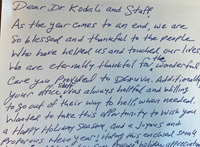 Dear Dr. Kodali and Staff,
As the year comes to an end, we are
so blessed and thankful to the people
who have helped us and touched our lives
We are eternally thankful for the wonderful
Care you provided to Additionally
your office staff was always helpful and willing
to go out of their way to help, when needed.
Wanted to take this opportunity to wish you
a Happy Holiday Season, and a Joyous and
Prosperous New Year! this enclosed small
Holiday